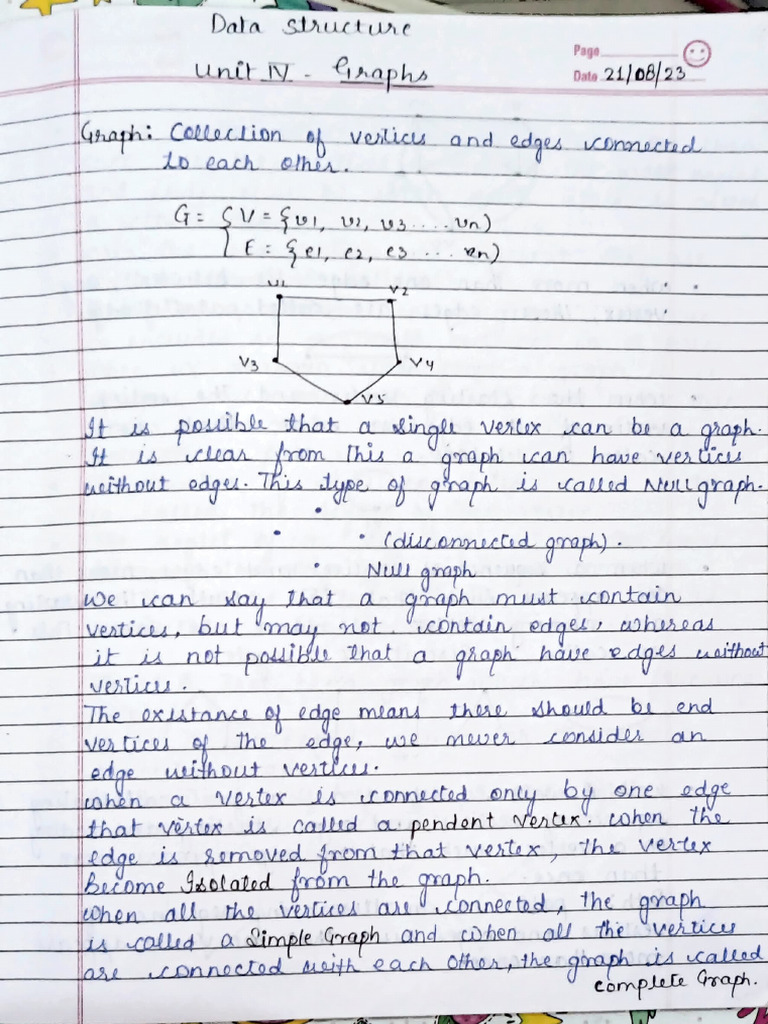 Data structure
Unit IV - Graphs
Page
Date 21/08/23
Graph: Collection of vertices and edges connected
to each other.
G = { V = {v1, v2, v3 .... vn)
E = {e1, e2, e3 ... en)
v1 v2
v3 v4
v5
It is possible that a single vertex can be a graph.
It is clear from this a graph can have vertices
without edges. This type of graph is called Null graph.
(disconnected graph).
Null graph
We can say that a graph must contain
vertices, but may not contain edges whereas
it is not possible that a graph have edges without
vertices.
The existance of edge means there should be end
vertices of the edge, we never consider an
edge without vertices.
When a vertex is connected only by one edge
that vertex is called a pendent vertex. when the
edge is removed from that vertex, the vertex
become Isolated from the graph.
When all the vertices are connected, the graph
is called a Simple Graph and when all the vertices
are connected with each other, the graph is called
complete Graph.